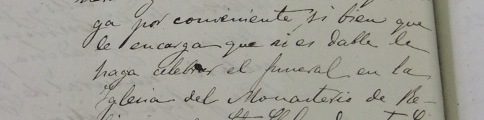 ga por conveniente, si bien que
le encarga que si es dable le
haga celebrar el funeral en la
Iglesia del Monasterio de Re-